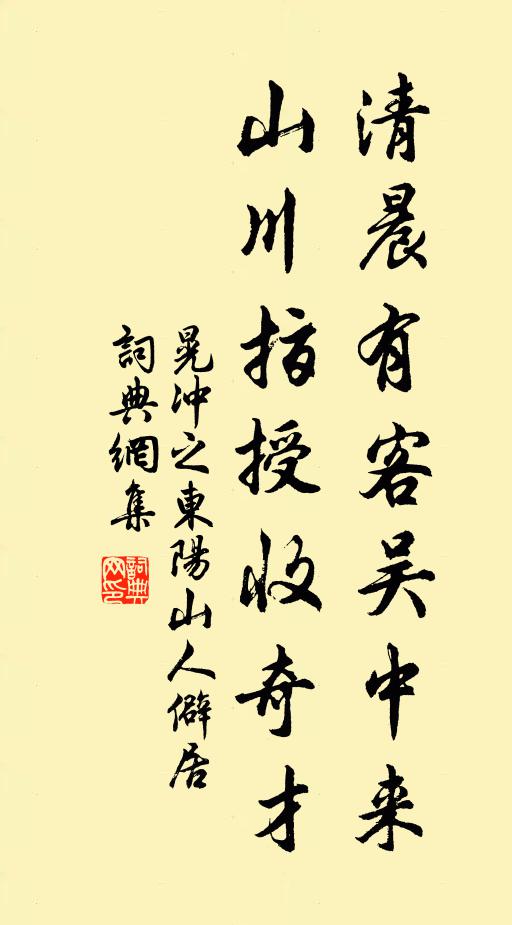 清晨有客吴中来
山川指授收奇才
晁冲之東陽山人僻居
詞典網集
詞典网印